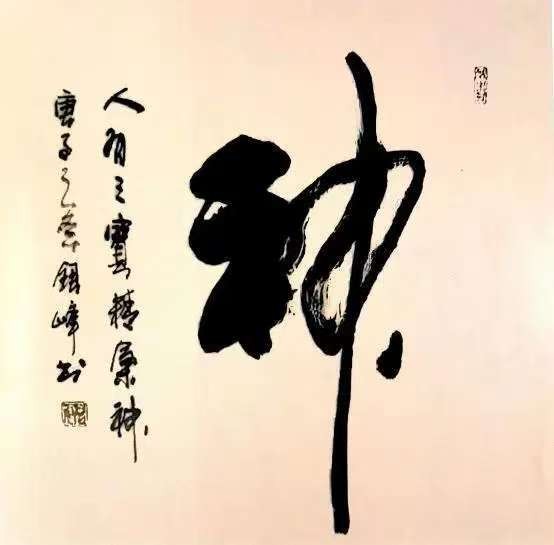 神
人有三寶精氣神
庚子之春銀峰书